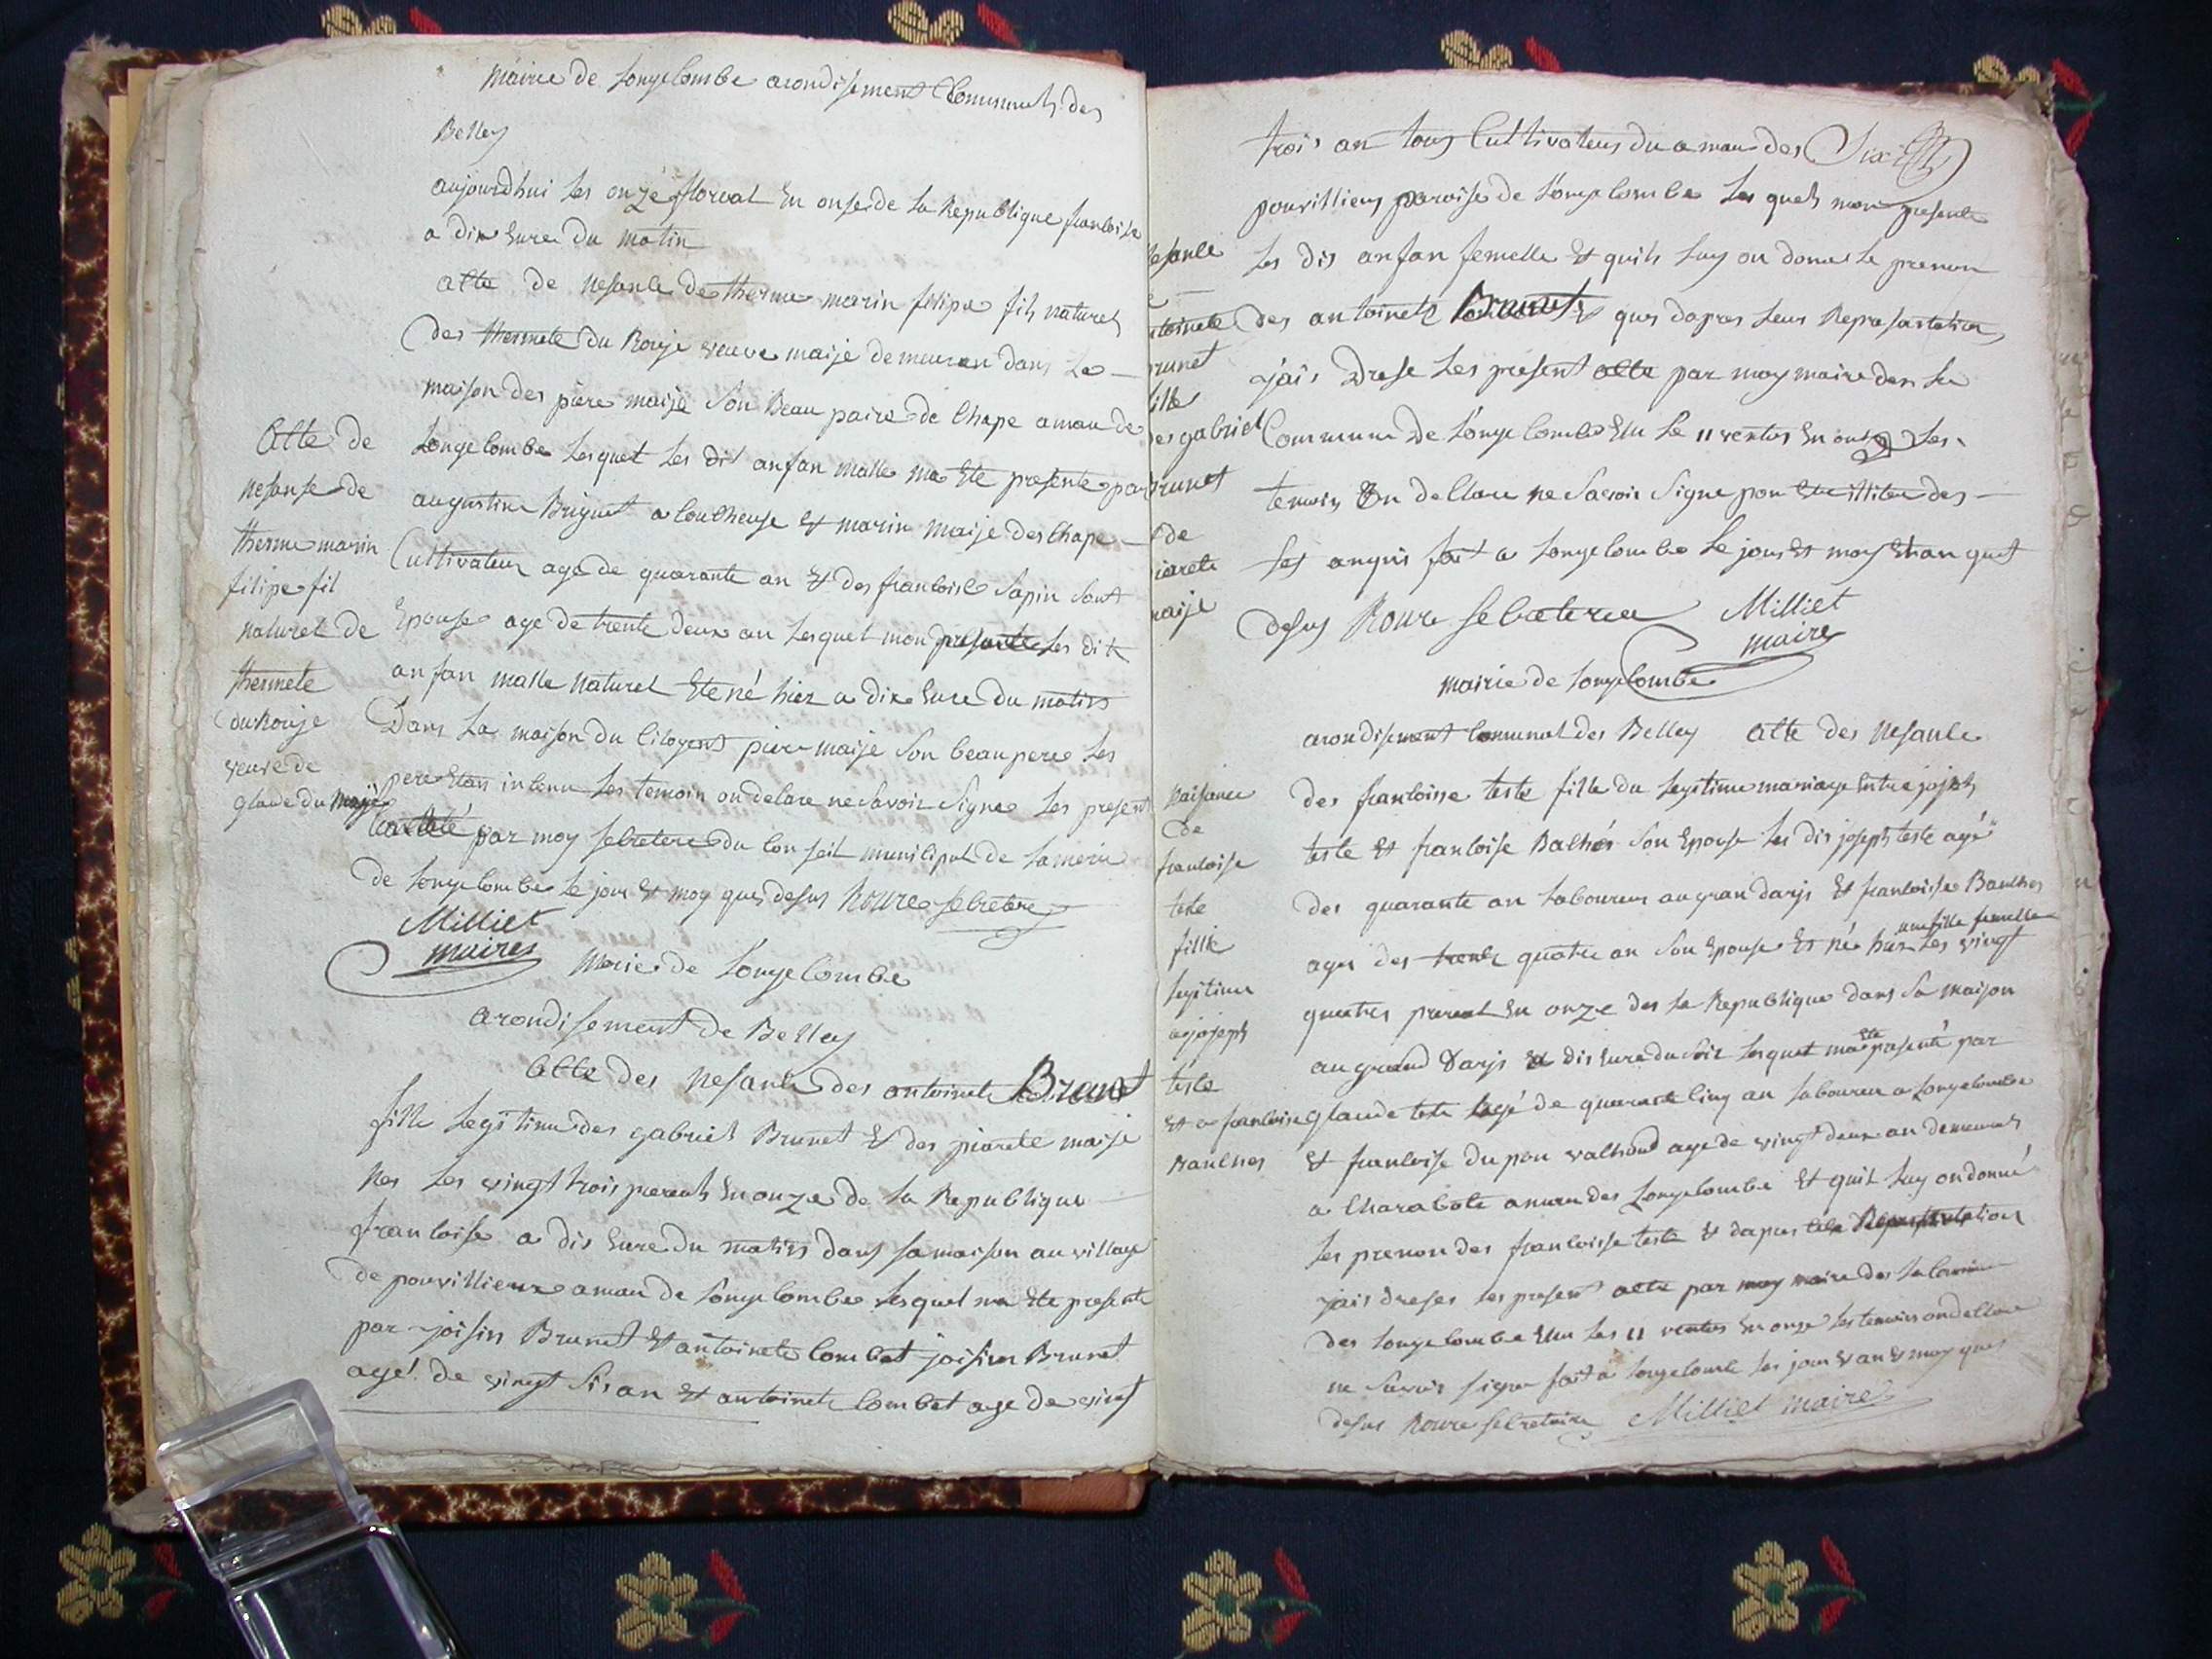 mairie de Longelombe arondisement Communal des
Belley
aujourdhui Les onze floreal En onse de La Republique franloise
a dix Eure du matin
alte de nesanle de therme marin filipe fils naturel
des thermete du Rouje veuve maije demeuran dans La
maison des piere maije Son Beau paire de Chape aman de
Longelombe Lesquel Les dit anfan malle ma Ete presente par
augustin Briguet a loutheuse Et marin maije des Chape
Cultivateur age de quarante an Et des franloise Sapin Sont
Epouse age de trente deux an Lesquel mon presante Les dit
anfan malle naturel Ete né hier a dix Eure du matin
Dans La maison du Citoyent piere maije Son beau pere Les
pere Etan inlenu Les temoin on delare ne Savoir Signe Les present
par moy Sebretere du Conseil munilipal de La merie
de Longelombe Le jour Et moy ques desus Roure Sebretere
Milliet
maire
Alte de
nesanse de
therme marin
filipe fil
naturel de
thermete
du Rouje
veuve de
glaude du maije
Merie de Longelombe
arondisement de Belley
Alte des nesanle des antoinete Brunet
fille Legitime des gabriel Brunet Et des piarete maije
Nes Les vingt trois prereal En onze de La Republique
franloise a dis Eure du matin dans Sa maison au village
de pouvillieux aman de Longelombe Lesquel ma Ete presente
par joisin Brunet Et antoinete Combet joisin Brunet
agé de vingt Sis an Et antoinete Combet age de vingt
trois an tous Cultivateur du a man des
pouvillieux paroise de Longelombe Les quels mon presente
Les dis anfan femelle Et quils Luy on done Le prenon
des antoinete Brunet Et ques dapres Leur Represantation
jais Drese Les present alte par moy maire des La
Commune de Longelombe Les
temoin on dellare ne Savoir Signe pour des
fait a Longelombe Le jour Et moy Et an quet
desus Roure Sebreterea Milliet
maire
nesanle
antoinete
Brunet
fille
des gabriel
Brunet
Et de
piarete
maije
mairie de Longelombe
arondisement Comunal des Belley Alte des Nesanle
des franloisse teste fille du Legitime mariage Entre joseph
teste Et franloise Balhes Son Epouse Les dis joseph teste agé
des quarante an Laboureur au gran darjs Et franloisse Baulhes
ages des trente quatre an Son Epouse Et né hier une fille femelle Les vingt
quatres prereal En onze des La Republique dans Sa maison
au grand Darjs a dis Eure du Soir Lesquel ma Ete presenté par
glaude teste agé de quarante Cinq an Laboureur a Longelombe
Et franloise du pon valhoud age de vingt deux an demeurant
a Charabote aman des Longelombe Et quil Luy on donné
Les prenon des franloisse teste Et dapres
jais dreses Les present alte par moy maire des La Comune
des Longelombe En onze Les temoin on dellare
ne Savoir Signe fait a Longelombe Les jour Et an Et moy ques
desus Roure Sebretaire Milliet maire
Naisance
de
franloise
teste
fillie
Legitime
a joseph
teste
Et a franloise
Baulhes